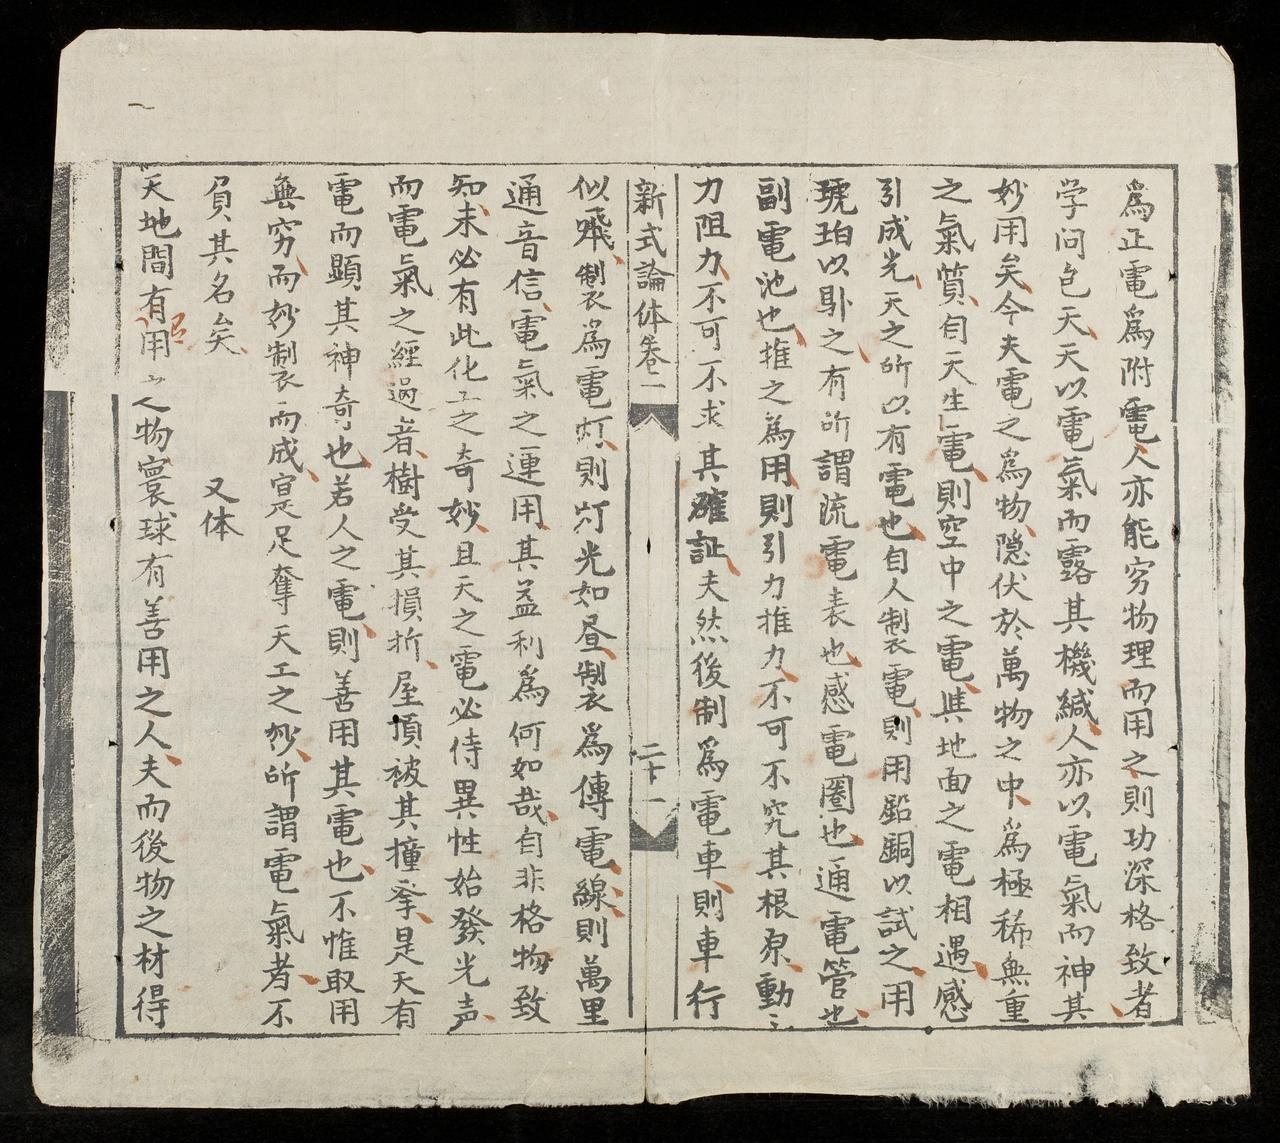 為正電為附電人亦能穷物理而用之則功深格致者
学问包天天以電氣而露其機緘人亦以電氣而神其
妙用矣今夫電之為物隐伏於萬物之中為極稀無重
之氣質自天生電則空中之電與地面之電相遇感
引成光天之所以有電也自人製電則用鉛銅以試之用
琥珀以取之有所謂流電表也感電圈也通電管也
副電池也推之為用則引力推力不可不究其根原動
力阻力不可不求其確証夫然後制為電車則車行
新式論体卷一
二十一
似飛製為電灯則灯光如昼製為傳電線則萬里
通音信電氣之運用其益利為何如哉自非格物致
知未必有此化工之奇妙且天之電必待異性始發光声
而電氣之經過者樹受其損折屋頂被其撞是天有
電而顯其神奇也若人之電則善用其電也不惟取用
無穷而妙製而成寔足奪天工之妙所謂電氣者不
負其名矣
又体
天地間有用之物寰球有善用之人夫而後物之材得